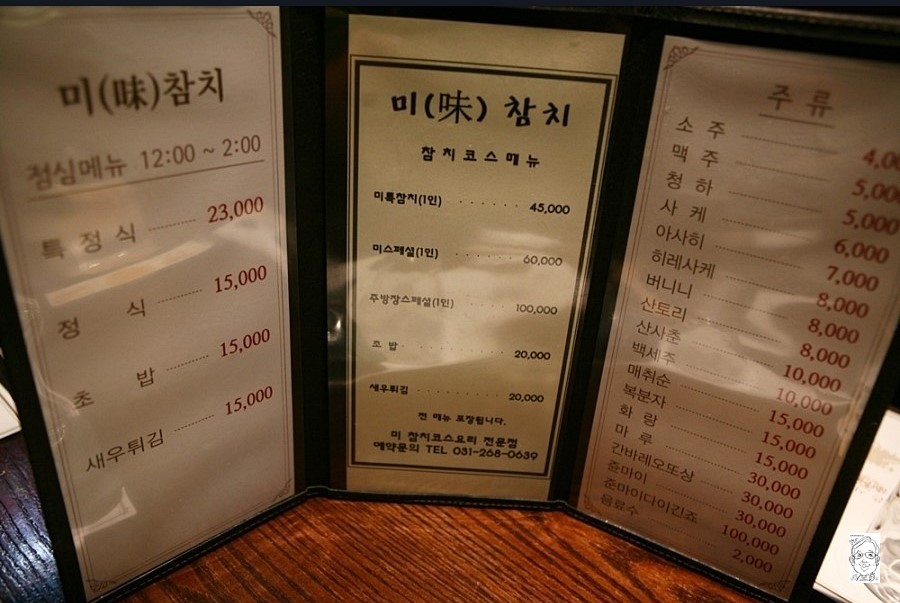 미(味)참치
점심메뉴 12:00 ~ 2:00
특 정 식 23,000
정 식 15,000
초 밥 15,000
새우튀김 15,000
미(味) 참치
참치코스메뉴
미특참치(1인) 45,000
미스페셜(1인) 60,000
주방장스페셜(1인) 100,000
초 밥 20,000
새우튀김 20,000
전 메뉴 포장됩니다.
미 참치코스요리 전문점
예약문의 TEL 031-268-0639
주 류
소 주 4,00
맥 주 5,000
청 하 5,000
사 케 6,000
아사히 7,000
히레사케 8,000
버니니 8,000
산토리 8,000
산사춘 10,000
백세주 10,000
매취순 15,000
복분자 15,000
화 랑 15,000
마 루 30,000
간바레오또상 30,000
쥰마이 30,000
쥰마이다이긴죠 100,000
음료수 2,000